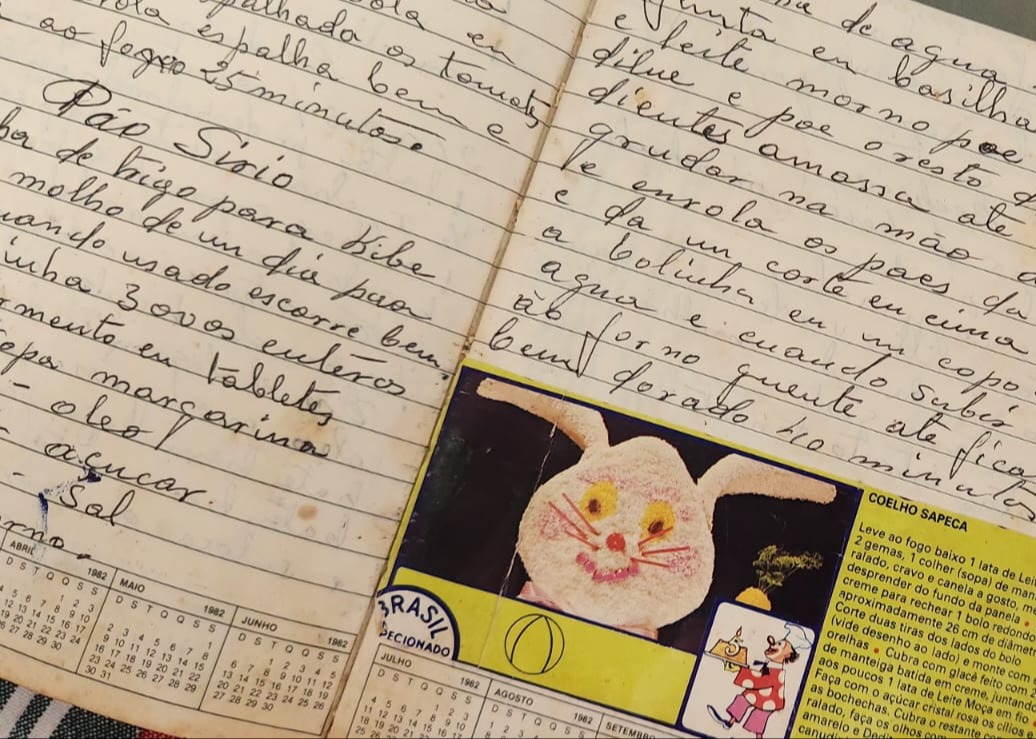 espalhada os tomates
espalha bem e
ao fogo 25 minutos.
Pão Sirio
de trigo para Kibe
molho de un dia para
usado escorre bem
3 ovos enteros
en tabletes
margarina
- oleo
- açucar.
- Sal
de agua
Junta en basilha
e leite morno poe
dilue e poe o resto
dientes amassa ate
grudar na mão
e enrola os paes da
e da un corte en cima
a bolinha en un copo
agua e cuando subir
ão forno quente ate fica
bem dorado 40 minutos
ABRIL 1982
D S T Q Q S S
1 2 3
4 5 6 7 8 9 10
11 12 13 14 15 16 17
18 19 20 21 22 23 24
25 26 27 28 29 30
MAIO 1982
D S T Q Q S S
1
2 3 4 5 6 7 8
9 10 11 12 13 14 15
16 17 18 19 20 21 22
23 24 25 26 27 28 29
30 31
JUNHO 1982
D S T Q Q S S
1 2 3 4 5
6 7 8 9 10 11 12
13 14 15 16 17 18 19
20 21 22 23 24 25 26
27 28 29 30
BRASIL
JULHO 1982
D S T Q Q S S
1 2 3
4 5 6 7 8 9 10
11 12 13 14 15 16 17
AGOSTO 1982
D S T Q Q S S
1 2 3 4 5 6 7
SETEMBRO
COELHO SAPECA
Leve ao fogo baixo 1 lata de
2 gemas, 1 colher (sopa) de
ralado, cravo e canela a gosto,
desprender do fundo da panela •
creme para rechear 1 bolo redondo
aproximadamente 26 cm de
Corte duas tiras dos lados do bolo
(vide desenho ao lado) e monte com
orelhas • Cubra com glacê feito com
de manteiga batida em creme, juntando
aos poucos 1 lata de Leite Moça em
Faça com o açúcar cristal rosa os cílios e
as bochechas. Cubra o restante
ralado, faça os olhos com
amarelo e